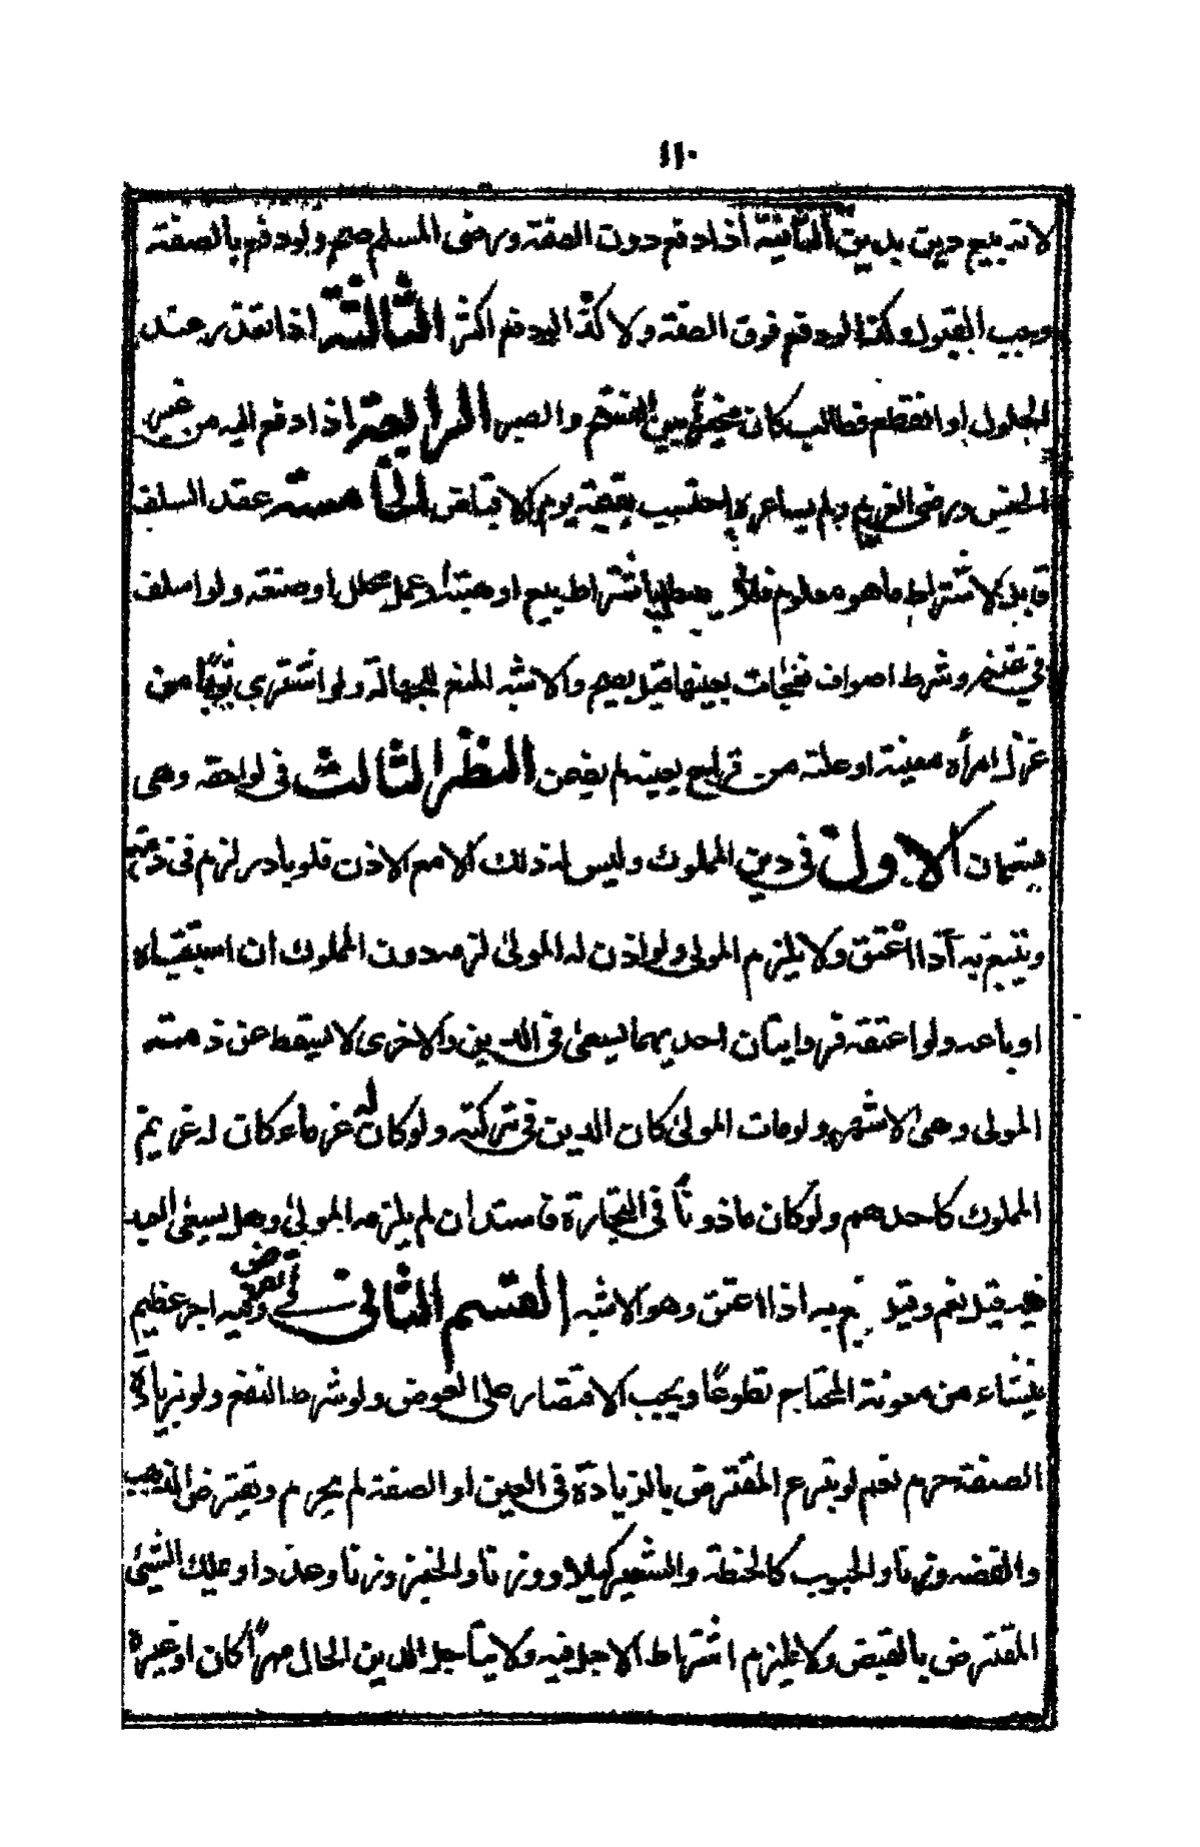 ١١٠
لانه بيع دين بدين الثانية اذا دفع دون الصفة ورضى المسلم صح ولو دفع بالصفة
وجب القبول وكذا لو دفع فوق الصفة ولا كذا لو دفع اكثر الثالثة اذا تعذر عند
الحلول او انقطع فطالب كان مخيرا بين الفسخ والصبر الرابعة اذا دفع اليه من غير
الجنس ورضى الغريم ولم يساعره احتسب بقيمته يوم الاقباض الخامسة عقد السلف
قابل لاشتراط ما هو معلوم فلا يبطل باشتراط بيع او هبة او عمل محلل او صنعة ولو اسلف
فى غنم وشرط اصواف نعجات بعينها قيل يصح والاشبه المنع للجهالة ولو اشترى ثوبا من
غزل امرأة معينة او غلة من قراح بعينه لم يضمن النظر الثالث فى لواحقه وهى
قسمان الاول فى دين المملوك وليس له ذلك الا مع الاذن فلو بادر لزم فى ذمته
ويتبع به اذا اعتق ولا يلزم المولى ولو اذن له المولى لزمه دون المملوك ان استبقاه
او باعه ولو اعتقه فروايتان احديهما يسعى فى الدين والاخرى لا يسقط عن ذمته
المولى وهى الاشهر ولو مات المولى كان الدين فى تركته ولو كان له غرماء كان له غريم
المملوك كاحدهم ولو كان ماذونا فى التجارة فاستدان لم يلزمه المولى وهل يسعى العبد
فيه قيل نعم وقيل يتبع به اذا اعتق وهو الاشبه القسم الثانى فى القرض وفيه اجر عظيم
ينشاء من معونة المحتاج تطوعا ويجب الاقتصار على العوض ولو شرط النفع ولو زيادة
الصفة حرم نعم لو تبرع المقترض بالزيادة فى العين او الصفة لم يحرم ويقترض الذهب
والفضة وزنا والحبوب كالحنطة والشعير كيلا ووزنا والخبز وزنا وعددا ويملك الشيئ
المقترض بالقبض ولا يلزم اشتراط الاجل فيه ولا يتاجل الدين الحال مهرا كان او غيره